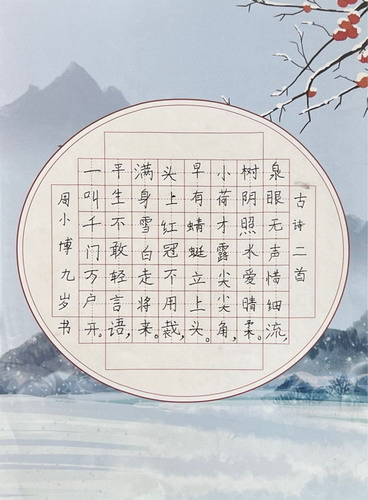 古诗二首
泉眼无声惜细流，
树阴照水爱晴柔。
小荷才露尖尖角，
早有蜻蜓立上头。
头上红冠不用裁，
满身雪白走将来。
平生不敢轻言语，
一叫千门万户开。
周小博九岁书